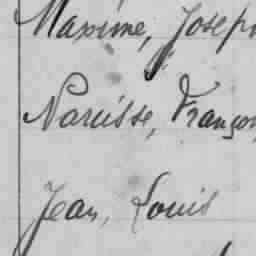 Maxime, Joseph
Narcisse, François
Jean, Louis